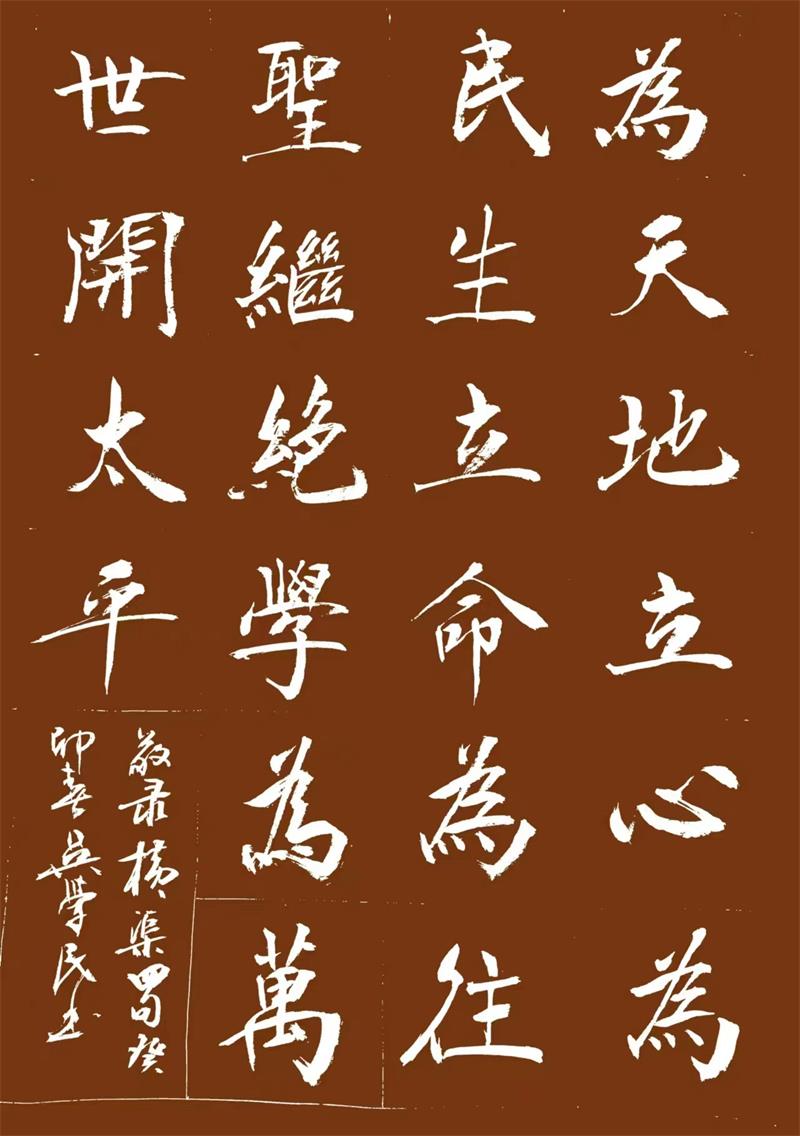 為天地立心為
民生立命為往
聖繼絕學為萬
世開太平
敬录橫渠四句癸
卯春吳學民书